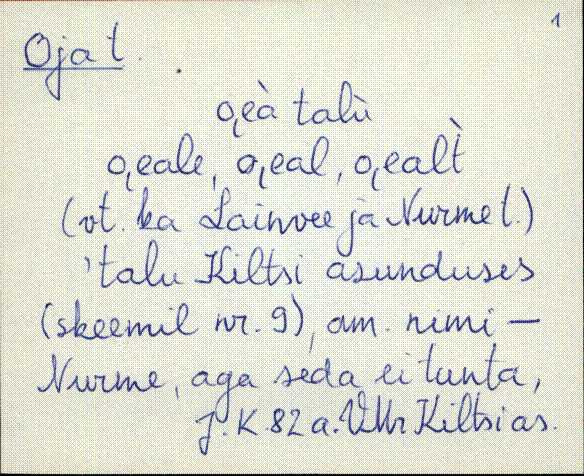 1
Oja t.
o̬eà talù
o̬eale, o̬eal, o̬ealt̀
(vt. ka Lainvee ja Nurme t.)
'talu Kiltsi asunduses
(skeemil nr. 9), am. nimi –
Nurme, aga seda ei tunta,
J.K. 82 a. VMr Kiltsi as.